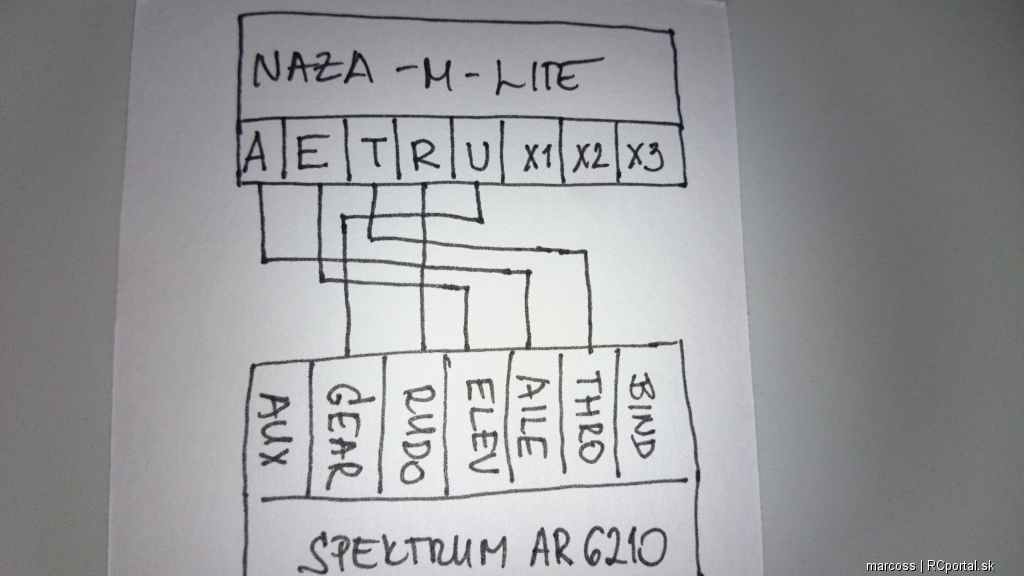 NAZA-M-LITE
A E T R U X1 X2 X3
AUX GEAR RUDO ELEV AILE THRO BIND
SPEKTRUM AR6210
marcoss | RCportal.sk